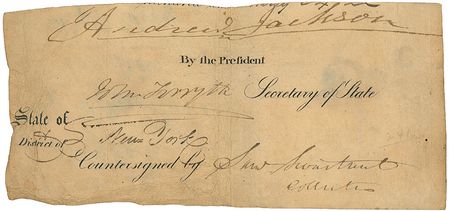 Andrew Jackson
By the President
John Forsyth Secretary of State
State of
District of New York
Countersigned by Sam Swartwout
Collector